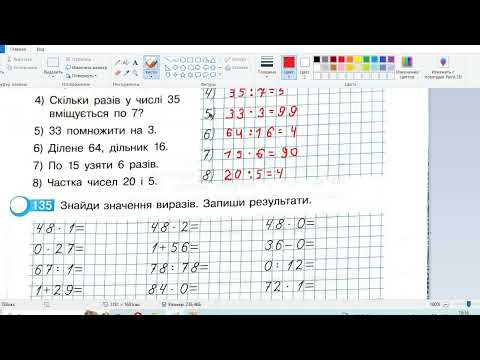 Главная Вид
Выделить
Изменить размер
Повернуть
Кисти
Фигуры
Толщина
Цвет
Цвет
Изменение цветов
Цвета
4) Скільки разів у числі 35
вміщується по 7?
5) 33 помножити на 3.
6) Ділене 64, дільник 16.
7) По 15 узяти 6 разів.
8) Частка чисел 20 і 5.
4) 35:7=5
5) 33·3=99
6) 64:16=4
7) 15·6=90
8) 20:5=4
135 Знайди значення виразів. Запиши результати.
48·1= 48·2= 48·0=
0·27= 1+56= 36-0=
67:1= 78:78= 0:12=
1+29= 84·0= 72·1=
100%